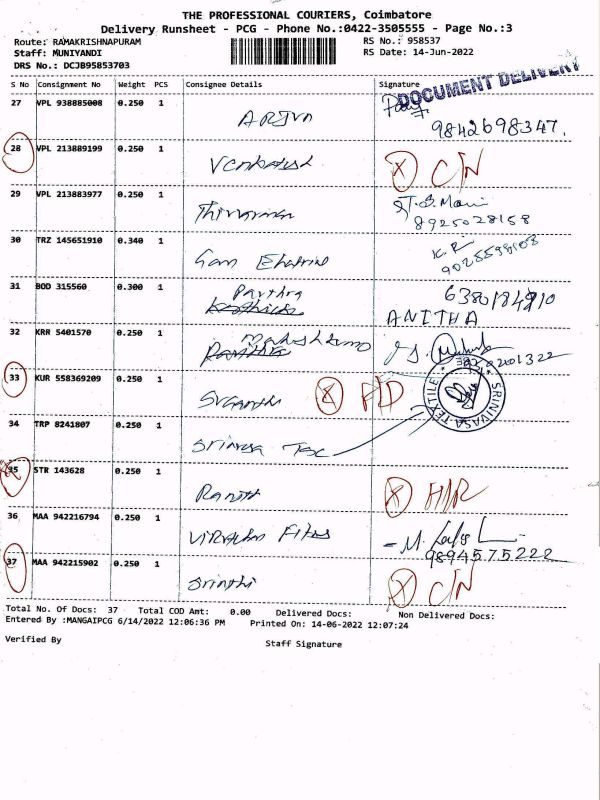 THE PROFESSIONAL COURIERS, Coimbatore
Delivery Runsheet - PCG - Phone No.:0422-3505555 - Page No.:3
Route: RAMAKRISHNAPURAM RS No.: 958537
Staff: MUNIYANDI RS Date: 14-Jun-2022
DRS No.: DCJB95853703
S No Consignment No Weight PCS Consignee Details Signature
DOCUMENT DELIVERY
27 VPL 938885008 0.250 1 ARJUN
9842698347.
28 VPL 213889199 0.250 1 Venkatesh X C/N
29 VPL 213883977 0.250 1
8925028158
30 TRZ 145651910 0.340 1 K.R
31 BOD 315560 0.300 1 Parthra
ANITHA
32 KRR 5401570 0.250 1
33 KUR 558369209 0.250 1 Suganthi X P/D
SRINIVASA TEXTILE
34 TRP 8241807 0.250 1
35 STR 143628 0.250 1 Ranjith X
36 MAA 942216794 0.250 1
9894575222
37 MAA 942215902 0.250 1 Srinthi X C/N
Total No. Of Docs: 37 Total COD Amt: 0.00 Delivered Docs: Non Delivered Docs:
Entered By :MANGAIPCG 6/14/2022 12:06:36 PM Printed On: 14-06-2022 12:07:24
Verified By Staff Signature